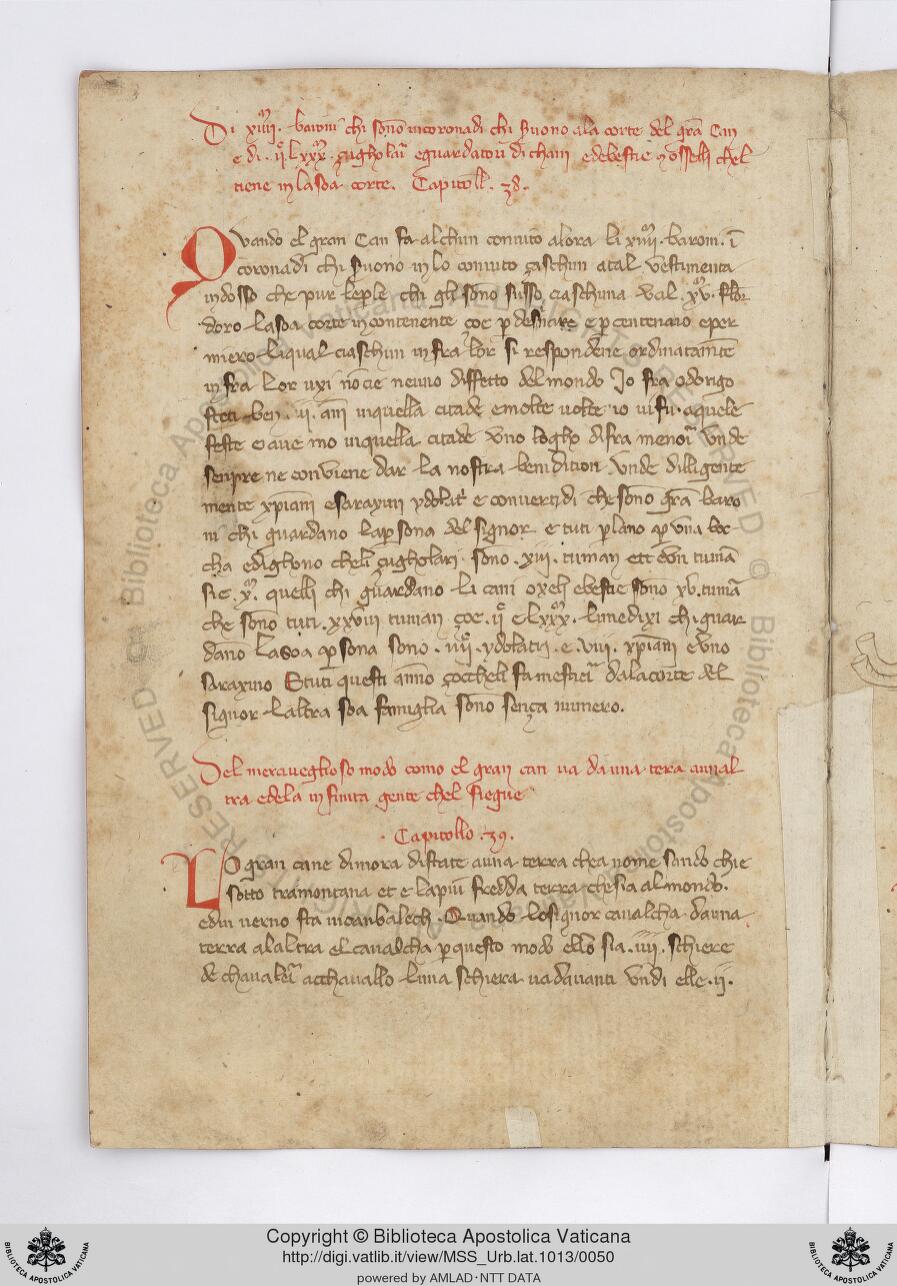 Di xiiii.ᵐ baroni chi sono incoronadi chi Suono ala corte del grā Can
e di .ii.ᶜ lxxx.ᵐ çugholari e guardatori di chani e de bestie oxelli chel
tiene in la soa corte. Capitoll. 38.
Quando el gran Can fa alchun convito alora li xiiii.ᵐ baroni. ī
coronadi chi Suono in lo convito çaschun a tal vestimenta
indosso che pur le perle chi gli sono susso ciaschuna val .xv.ᵐ flor
doro la soa corte in contenente çoe p desnare e p centenaro e per
miero li qual ciaschun infra lor si respondene ordinatamēte
infra lor uxi nō cie neuno diffetto del mondo Io fra odorigo
steti ben .ii. ani in quella citade e molte volte io vi fu. a quele
feste e aue mo in quella citade uno logho di fra menori unde
senpre ne conviene dar la nostra benidition unde dilligente
mente xp̄iani e sarayini ydolatri e convertidi che sono grā baro
ni chi guardano la psona del signor e tuti plano p una boc
cha e dighono che li çugholari sono .xiii. tuman et è un tumā
sie .x.ᵐ quelli chi guardano li cani oxeli e bestie sono xv. tumā
che sono tuti .xxviii tuman çoe .ii.ᶜ e lxxx.ᵐ li medixi chi guar
dano la soa psona sono .iiii.ᶜ ydolatri e .viii. xp̄iani e uno
saraxino E tuti questi anno çocchelli fa mestieri dala corte del
signor l altra soa famiglia sono sença numero.
Del meraveglioso modo como el gran can va da una tera a un al
tra e dela infinita gente chel siegue
.Capitollo .39.
Lo gran cane dimora distate a una terra che a nome sando chie
sotto tramontana et e la piu fredda terra che sia al mondo.
ed in verno sta in canbalech. Quando lo signor cavalcha da una
terra al altra el cavalcha p questo modo ello sia .iiii. schiere
de chavalieri acchavallo l una schiera va davanti un di elle .ii.
Copyright © Biblioteca Apostolica Vaticana
http://digi.vatlib.it/view/MSS_Urb.lat.1013/0050
powered by AMLAD·NTT DATA